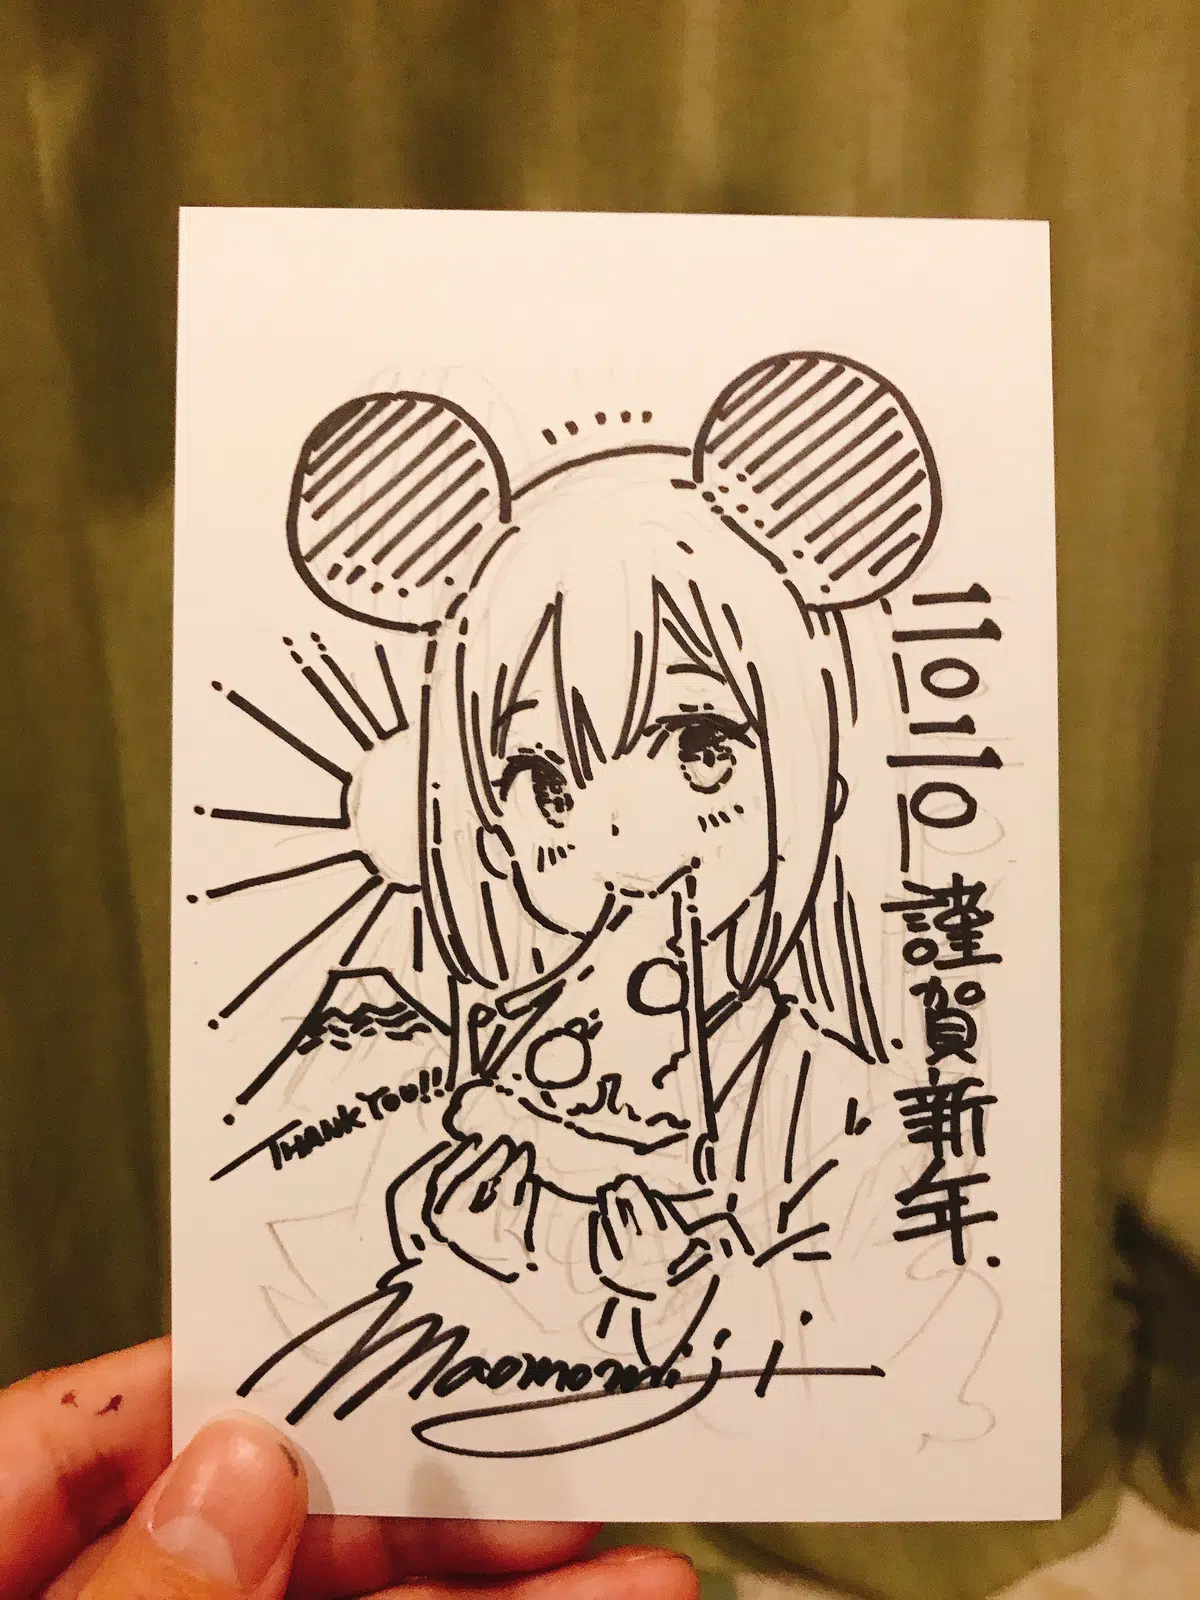 二〇二〇 謹賀新年.
THANK YOU!!
Maomomiji